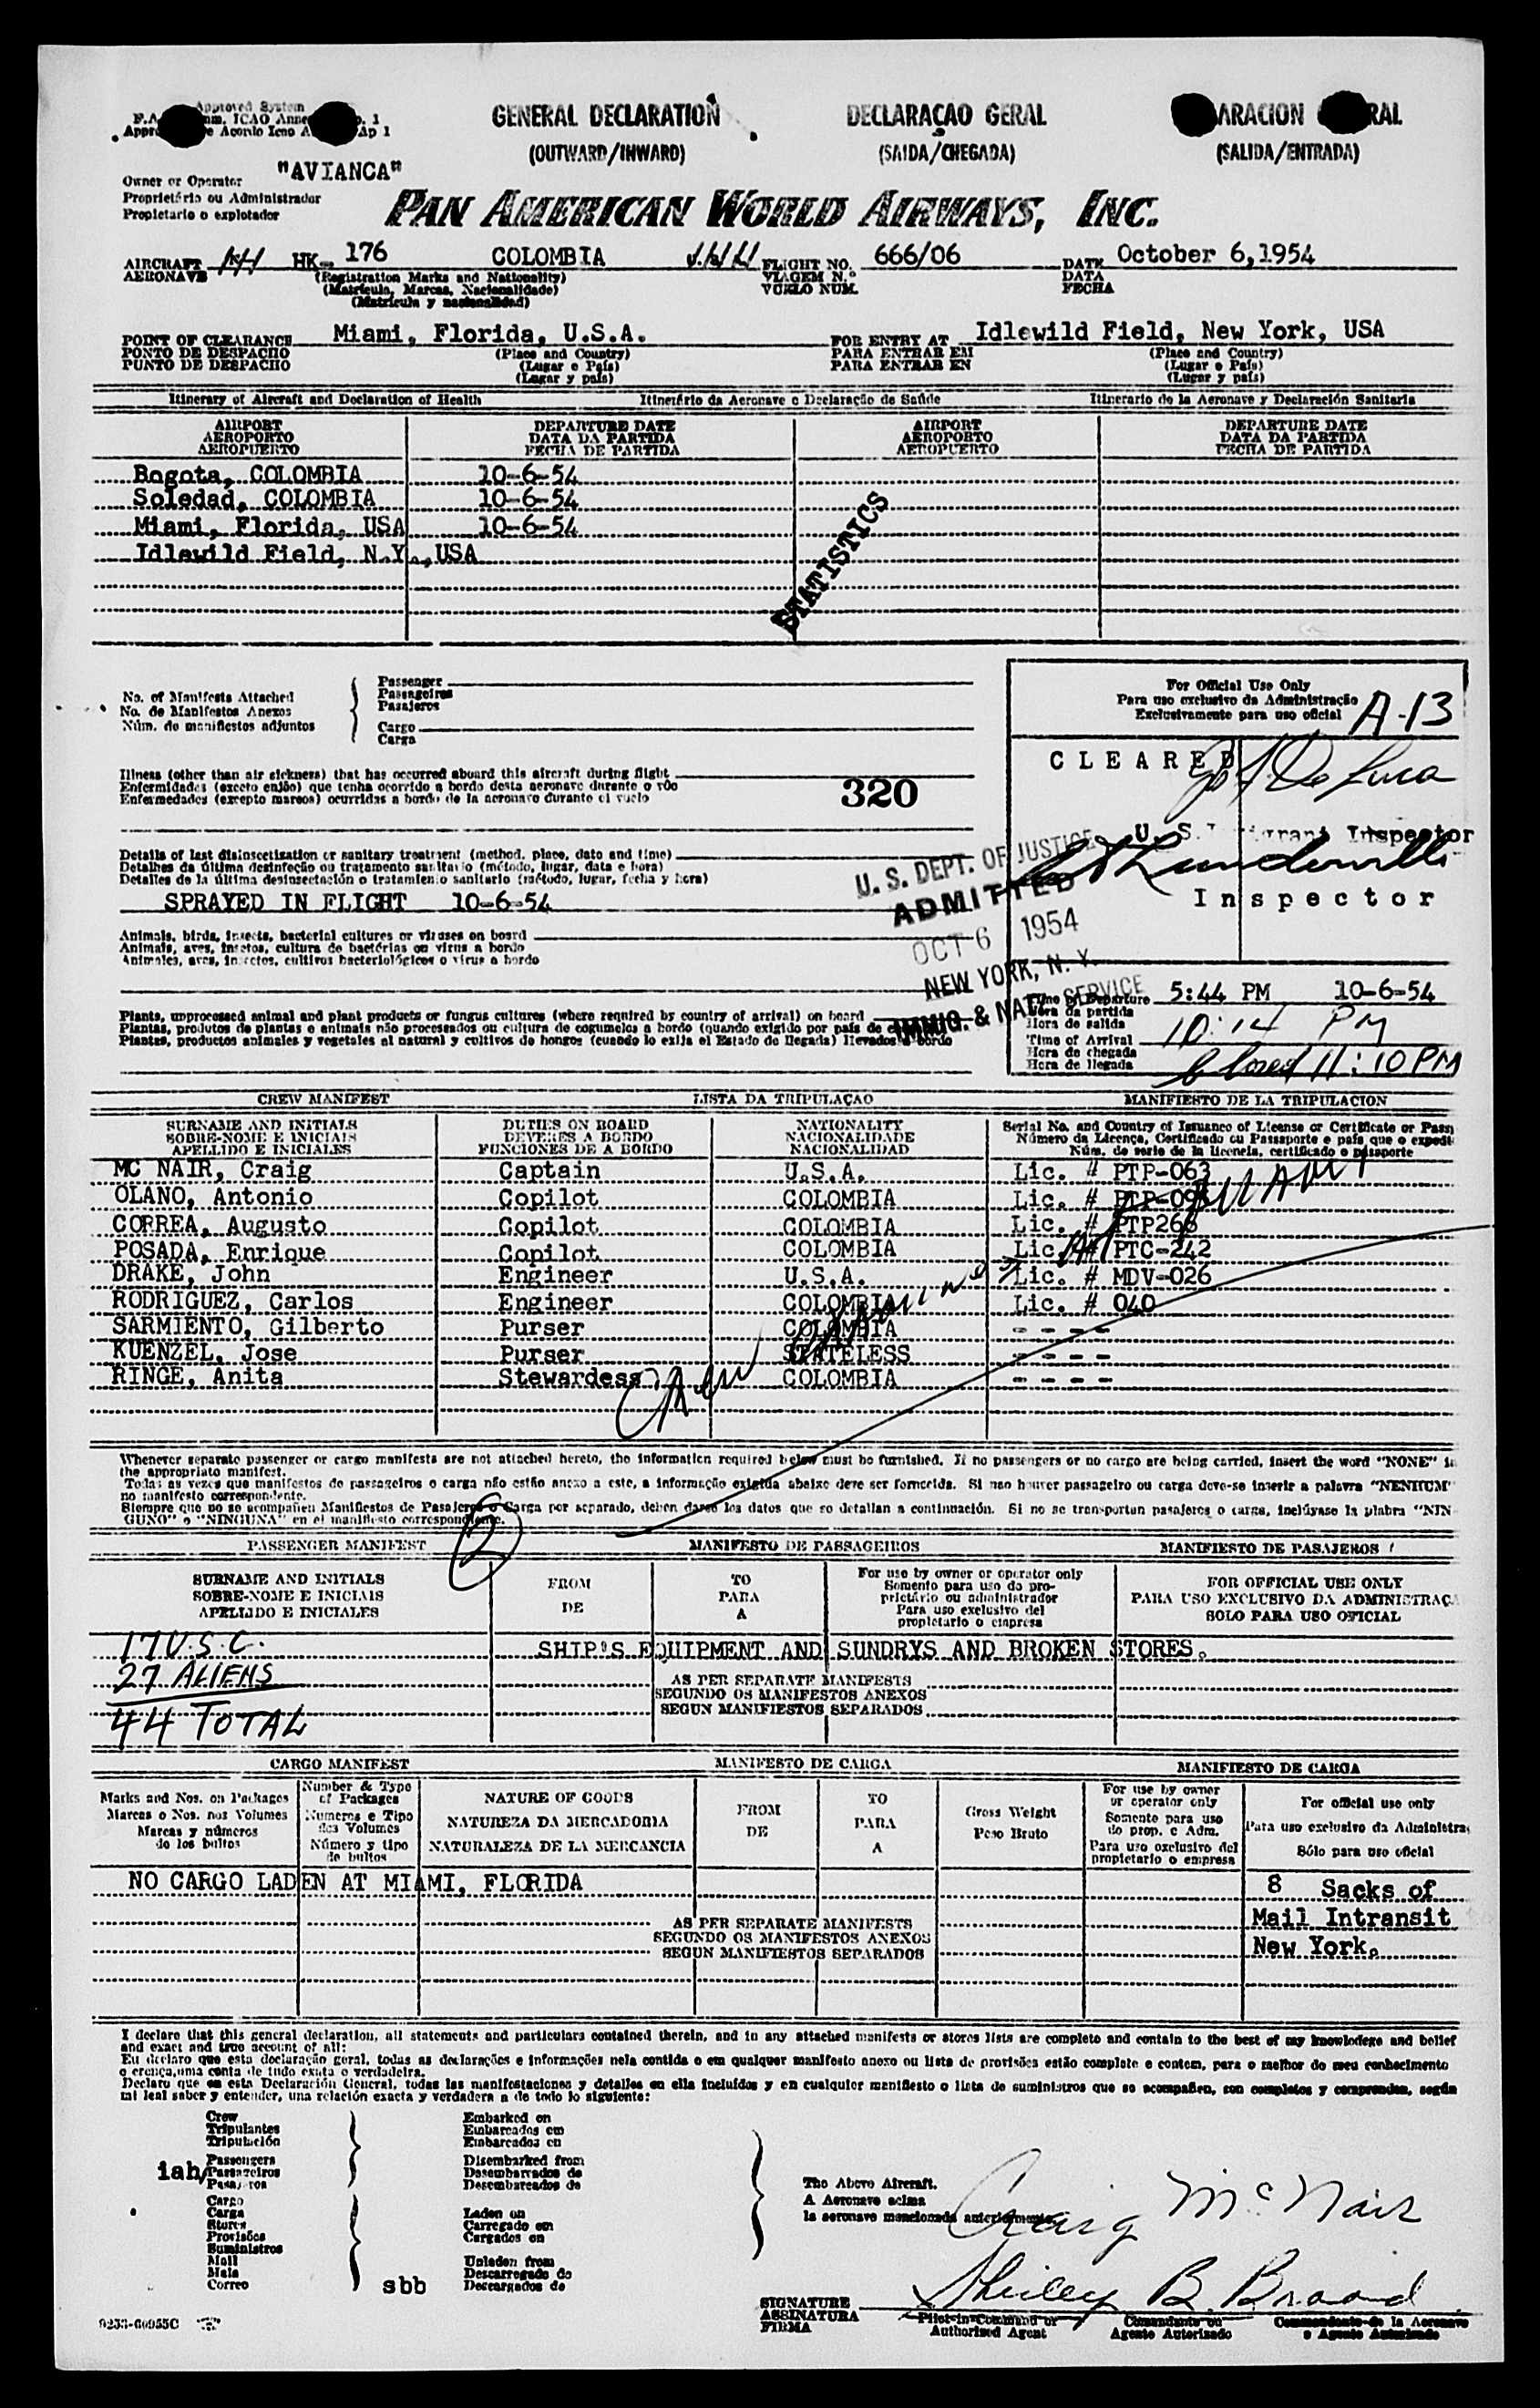 Approved System
GENERAL DECLARATION
(OUTWARD/INWARD)
DECLARAÇAO GERAL
(SAIDA/CHEGADA)
(SALIDA/ENTRADA)
"AVIANCA"
Owner or Operator
Proprietério ou Administrador
Propietario o explotador
PAN AMERICAN WORLD AIRWAYS, INC.
AIRCRAFT HK- 176 COLOMBIA
AERONAVE
(Registration Marks and Nationality)
(Matrícula, Marcas, Nacionalidade)
(Matrícula y nacionalidad)
FLIGHT NO. 666/06
VIAGEM N.º
VUELO NUM.
DATE October 6,1954
DATA
FECHA
POINT OF CLEARANCE Miami, Florida, U.S.A.
PONTO DE DESPACHO
PUNTO DE DESPACHO
(Place and Country)
(Lugar e País)
(Lugar y país)
FOR ENTRY AT Idlewild Field, New York, USA
PARA ENTRAR EM
PARA ENTRAR EN
(Place and Country)
(Lugar e País)
(Lugar y país)
Itinerary of Aircraft and Declaration of Health
Itinerário da Aeronave e Declaração de Saúde
Itinerario de la Aeronave y Declaración Sanitaria
AIRPORT DEPARTURE DATE AIRPORT DEPARTURE DATE
AEROPORTO DATA DA PARTIDA AEROPORTO DATA DA PARTIDA
AEROPUERTO FECHA DE PARTIDA AEROPUERTO FECHA DE PARTIDA
Bogota, COLOMBIA 10-6-54
Soledad, COLOMBIA 10-6-54
Miami, Florida, USA 10-6-54
Idlewild Field, N.Y., USA
STATISTICS
No. of Manifests Attached
No. de Manifestos Anexos
Núm. de manifiestos adjuntos
Passenger
Passageiros
Pasajeros
Cargo
Carga
For Official Use Only
Para uso exclusivo da Administração
Exclusivamente para uso oficial
A-13
CLEARED
Illness (other than air sickness) that has occurred aboard this aircraft during flight
Enfermidades (exceto enjôo) que tenha ocorrido a bordo desta aeronave durante o vôo
Enfermedades (excepto mareos) ocurridas a bordo de la aeronave durante el vuelo
320
Inspector
Inspector
Details of last disinsectization or sanitary treatment (method, place, date and time)
Detalhes da última desinfeção ou tratamento sanitario (método, lugar, data e hora)
Detalles de la última desinsectación o tratamiento sanitario (método, lugar, fecha y hora)
SPRAYED IN FLIGHT 10-6-54
U. S. DEPT. OF JUSTICE
ADMITTED
OCT 6 1954
NEW YORK, N. Y.
IMMIG. & NATZ. SERVICE
Animals, birds, insects, bacterial cultures or viruses on board
Animais, aves, insetos, cultura de bactérias ou vírus a bordo
Animales, aves, insectos, cultivos bacteriológicos o virus a bordo
Plants, unprocessed animal and plant products or fungus cultures (where required by country of arrival) on board
Plantas, produtos de plantas e animais não processados ou cultura de cogumelos a bordo (quando exigido por país de
Plantas, productos animales y vegetales al natural y cultivos de hongos (cuando lo exija el Estado de llegada) llevados a bordo
Time of Departure 5:44 PM 10-6-54
Hora da partida
Hora de salida
Time of Arrival 10:14 PM
Hora de chegada
Hora de llegada
Closed 11:10 PM
CREW MANIFEST LISTA DA TRIPULAÇAO MANIFIESTO DE LA TRIPULACION
SURNAME AND INITIALS
SOBRE-NOME E INICIAIS
APELLIDO E INICIALES
DUTIES ON BOARD
DEVERES A BORDO
FUNCIONES DE A BORDO
NATIONALITY
NACIONALIDADE
NACIONALIDAD
Serial No. and Country of Issuance of License or Certificate or Passp
Número da Licença, Certificado ou Passaporte e país que o expedi
Núm. de serie de la licencia, certificado o pasaporte
MC NAIR, Craig Captain U.S.A. Lic. # PTP-063
OLANO, Antonio Copilot COLOMBIA Lic. # PTP-09
CORREA, Augusto Copilot COLOMBIA Lic. # PTP268
POSADA, Enrique Copilot COLOMBIA Lic. # PTC-242
DRAKE, John Engineer U.S.A. Lic. # MDV-026
RODRIGUEZ, Carlos Engineer COLOMBIA Lic. # 040
SARMIENTO, Gilberto Purser COLOMBIA - - - -
KUENZEL, Jose Purser STATELESS - - - -
RINGE, Anita Stewardess COLOMBIA - - - -
Whenever separate passenger or cargo manifests are not attached hereto, the information required below must be furnished. If no passengers or no cargo are being carried, insert the word "NONE" in
the appropriate manifest.
Todas as vezes que manifestos de passageiros o carga não estão anexo a este, a informação exigida abaixo deve ser fornecida. Si nao houver passageiro ou carga deve-se inserir a palavra "NENHUM"
no manifesto correspondente.
Siempre que no se acompañen Manifiestos de Pasajeros o Carga por separado, deben darse los datos que se detallan a continuación. Si no se transportan pasajeros o carga, inclúyase la plabra "NIN-
GUNO" o "NINGUNA" en el manifiesto correspondiente.
PASSENGER MANIFEST MANIFESTO DE PASSAGEIROS MANIFIESTO DE PASAJEROS
SURNAME AND INITIALS
SOBRE-NOME E INICIAIS
APELLIDO E INICIALES
FROM
DE
TO
PARA
A
For use by owner or operator only
Somento para uso do pro-
prietário ou administrador
Para uso exclusivo del
propietario o empresa
FOR OFFICIAL USE ONLY
PARA USO EXCLUSIVO DA ADMINISTRAÇ
SOLO PARA USO OFICIAL
17 U.S.C.
27 ALIENS
44 TOTAL
SHIP'S EQUIPMENT AND SUNDRYS AND BROKEN STORES.
AS PER SEPARATE MANIFESTS
SEGUNDO OS MANIFESTOS ANEXOS
SEGUN MANIFIESTOS SEPARADOS
CARGO MANIFEST MANIFESTO DE CARGA MANIFIESTO DE CARGA
Marks and Nos. on Packages
Marcas o Nos. nos Volumes
Marcas y números
de los bultos
Number & Type
of Packages
Numeros e Tipo
dos Volumes
Número y tipo
de bultos
NATURE OF GOODS
NATUREZA DA MERCADORIA
NATURALEZA DE LA MERCANCIA
FROM
DE
TO
PARA
A
Gross Weight
Peso Bruto
For use by owner
or operator only
Somente para uso
do prop. e Adm.
Para uso exclusivo del
propietario o empresa
For official use only
Para uso exclusivo da Administra
Sólo para uso oficial
NO CARGO LADEN AT MIAMI, FLORIDA
8 Sacks of
Mail Intransit
New York.
AS PER SEPARATE MANIFESTS
SEGUNDO OS MANIFESTOS ANEXOS
SEGUN MANIFIESTOS SEPARADOS
I declare that this general declaration, all statements and particulars contained therein, and in any attached manifests or stores lists are complete and contain to the best of my knowledege and belief
and exact and true account of all:
Eu declaro que esta declaração geral, todas as declarações e informações nela contida o em qualquer manifesto anexo ou lista de provisões estão completo e contem, para o melhor do meu conhecimento
e crença,uma conta de tudo exata e verdadeira.
Declaro que en esta Declaración General, todas las manifestaciones y detalles en ella incluídos y en cualquier manifiesto o lista de suministros que se acompañen, son completos y comprenden, según
mi leal saber y entender, una relación exacta y verdadera a de todo lo siguiente:
Crew
Tripulantes
Tripulación
iah/
Passengers
Passageiros
Pasajeros
Cargo
Carga
Stores
Provisões
Suministros
Mail
Mala
Correo
sbb
Embarked on
Embarcados em
Embarcados en
Disembarked from
Desembarcados de
Desembarcados de
Laden on
Carregado em
Cargados en
Unladen from
Descarregado do
Descargados de
The Above Aircraft.
A Aeronave acima
la aeronave mencionada anteriormente.
Craig McNair
Shirley B. Broad
SIGNATURE
ASSINATURA
FIRMA
Pilot-in-Command or
Authorized Agent
Comandante ou
Agente Autorizado
Commandante de la Aeronave
o Agente Autorizado
9253-60955C